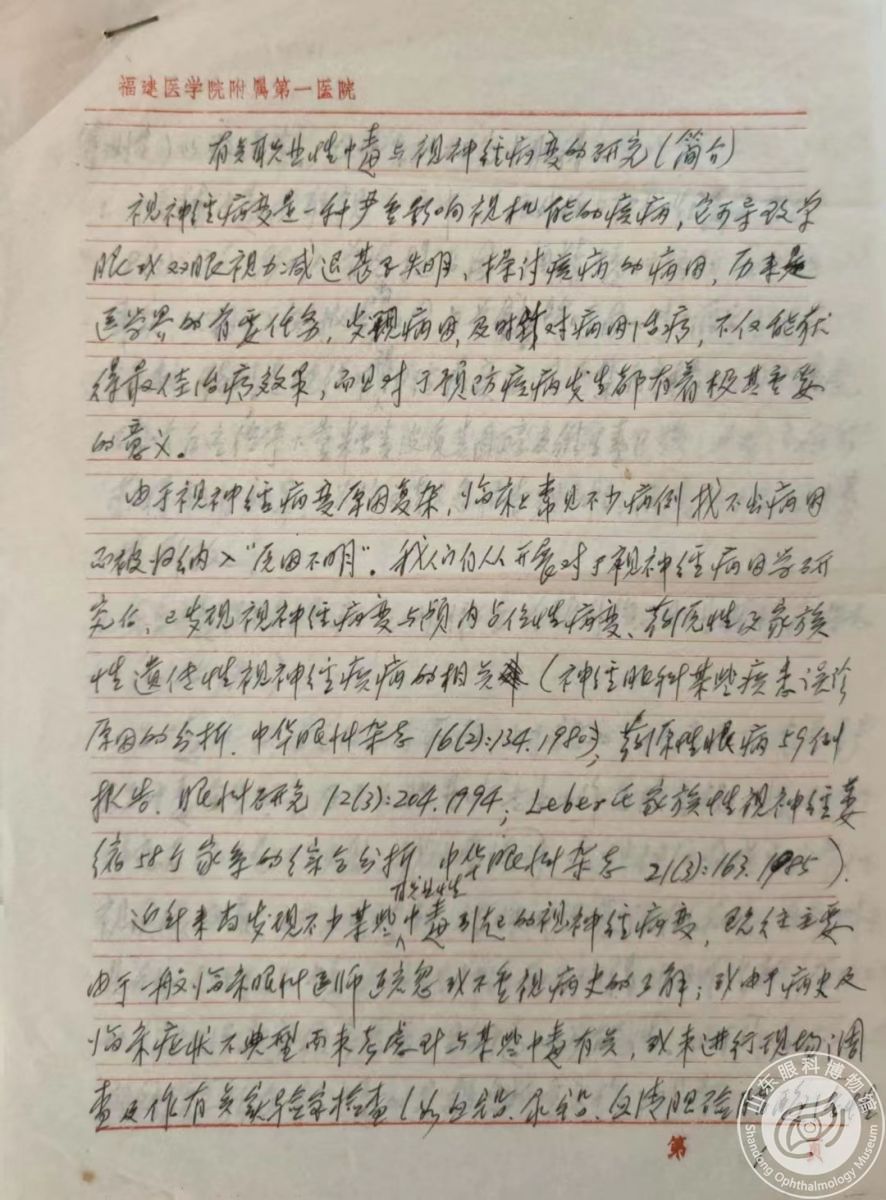 福建医学院附属第一医院
有关职业性中毒与视神经病变的研究(简介)
视神经病变是一种严重影响视机能的疾病,它可导致单
眼或双眼视力减退甚至失明、探讨疾病的病因,历来是
医学界的首要任务,发现病因,及时针对病因治疗,不仅能获
得最佳治疗效果,而且对于预防疾病发生都有着极其重要
的意义。
由于视神经病变原因复杂,临床上常见不少病例找不出病因
而被归纳入"原因不明"。我们自从开展对于视神经病因学研
究后、已发现视神经病变与颅内占位性病变、药原性及家族
性遗传性视神经疾病的相关(神经眼科某些疾患误诊
原因的分析.中华眼科杂志 16(2):134.1980);药原性眼病59例
报告.眼科研究 12(3):204.1994;Leber氏家族性视神经萎
缩58个家系的综合分析 中华眼科杂志 21(3):163.1985).
近年来有发现不少某些职业性中毒引起的视神经病变,既往主要
由于一般临床眼科医师疏忽或不重视病史的了解;或由于病史及
临床症状不典型而未考虑到与某些中毒有关,或未进行现场调
查及作有关实验室检查(如血铅、尿铅、
第 页
山东眼科博物馆
Shandong Ophthalmology Museum